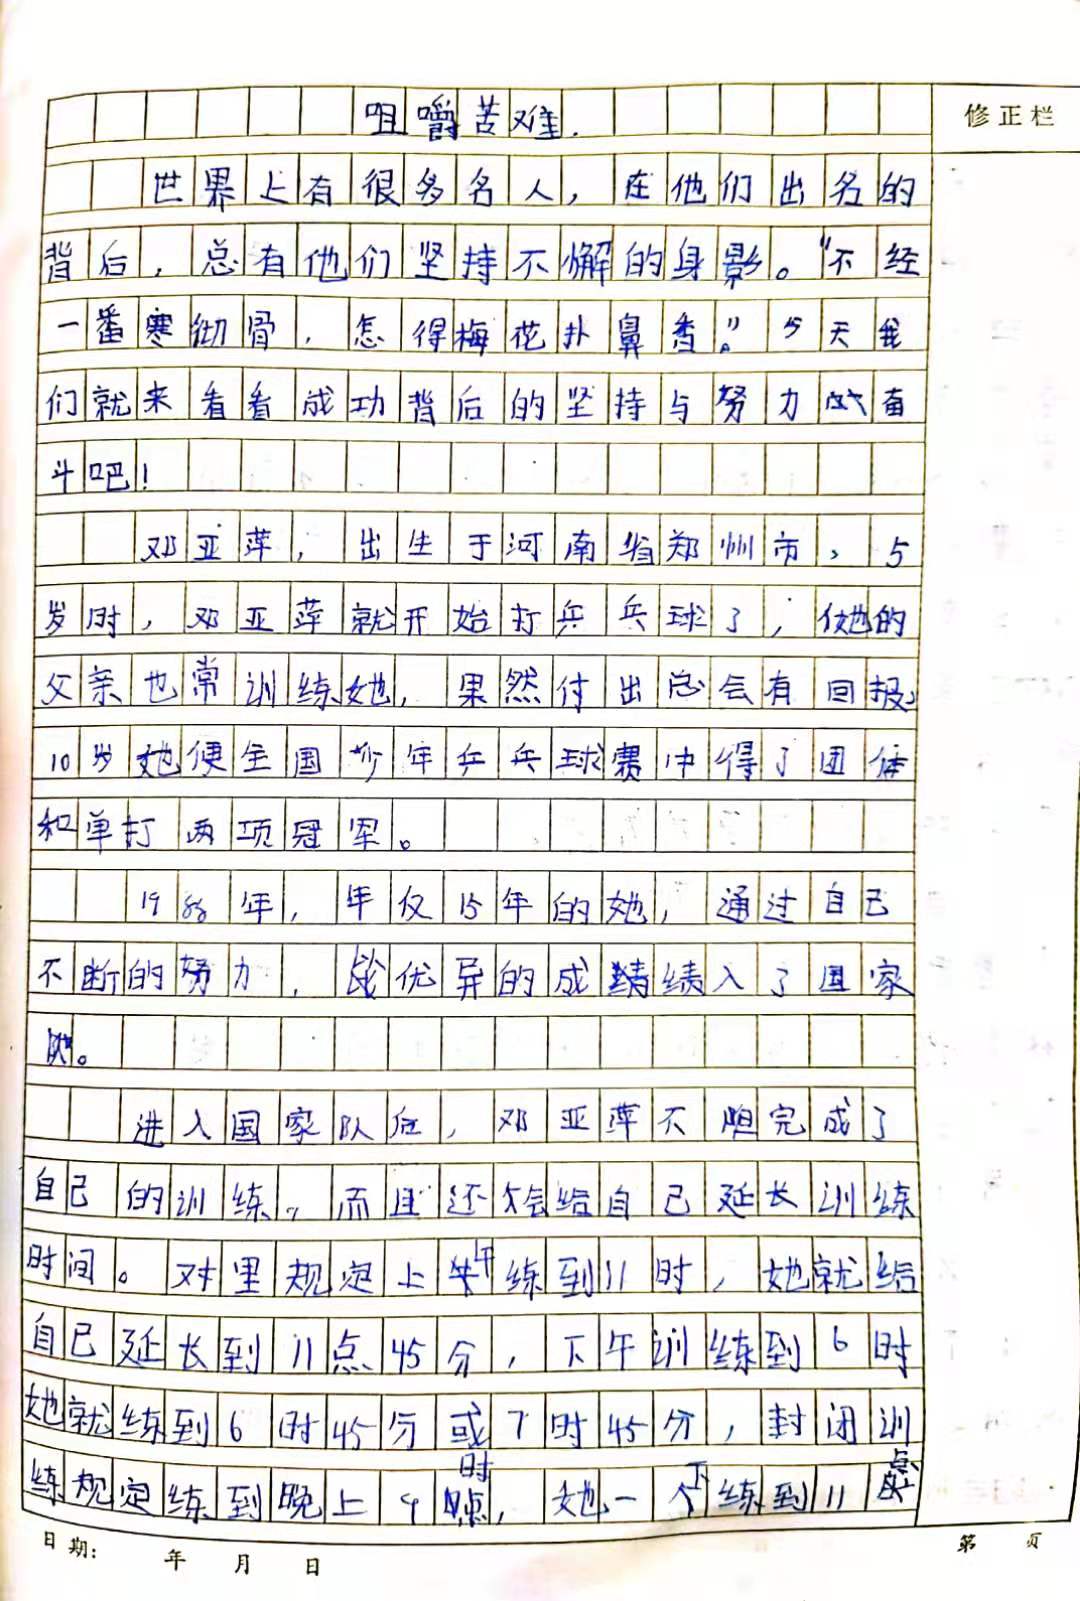 咀嚼苦难.
修正栏
世界上有很多名人，在他们出名的
背后，总有他们坚持不懈的身影。"不经
一番寒彻骨，怎得梅花扑鼻香。"今天我
们就来看看成功背后的坚持与努力奋
斗吧！
邓亚萍，出生于河南省郑州市，5
岁时，邓亚萍就开始打乒乓球了，她的
父亲也常训练她，果然付出总会有回报，
10岁她便全国少年乒乓球赛中得了团体
和单打两项冠军。
1988年，年仅15年的她，通过自己
不断的努力，以优异的成绩入了国家
队。
进入国家队后，邓亚萍不但完成了
自己的训练，而且还会给自己延长训练
时间。对里规定上午练到11时，她就给
自己延长到11点45分，下午训练到6时
她就练到6时45分或7时45分，封闭训
练规定练到晚上9时，她一下练到11点
日期：　年　月　日
第　页